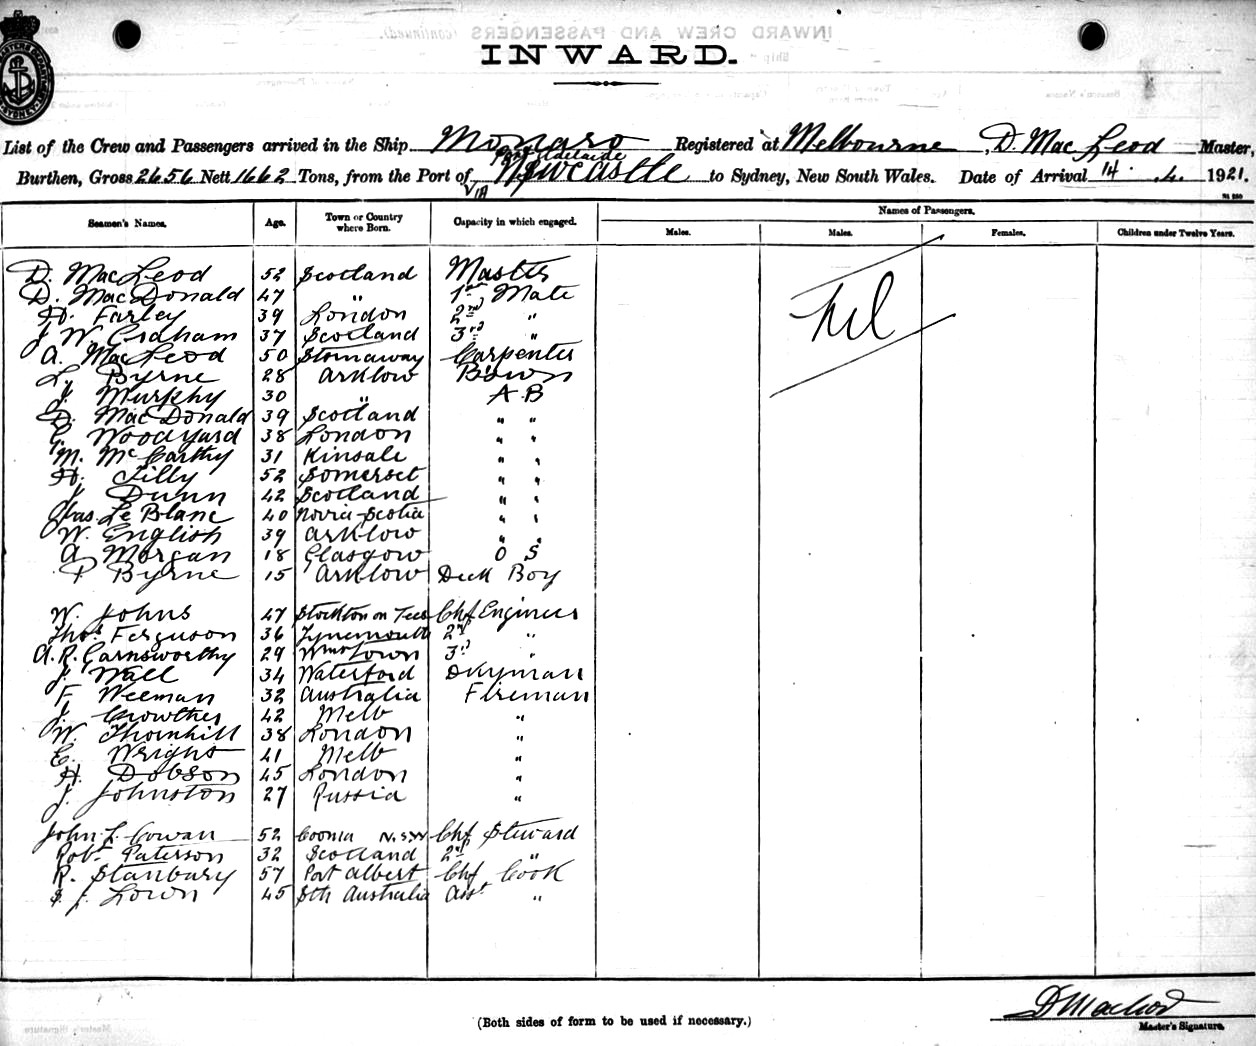 INWARD.
List of the Crew and Passengers arrived in the Ship Monaro Registered at Melbourne, D. Mac Leod Master,
Port Adelaide
Burthen, Gross 2656 Nett 1662 Tons, from the Port of VIA Newcastle to Sydney, New South Wales. Date of Arrival 14. 4. 1921.
Seamen's Names. Age. Town or Country where Born. Capacity in which engaged. Names of Passengers.
Males. Males. Females. Children under Twelve Years.
D. MacLeod 52 Scotland Master
D. MacDonald 47 " 1st Mate
H. Farley 39 London 2nd "
J W Graham 37 Scotland 3rd "
Nil
A. MacLeod 50 Stornaway Carpenter
L. Byrne 28 Arklow Bswn
J. Murphy 30 " A B
D. MacDonald 39 Scotland " "
G. Woodyard 38 London " "
M. McCarthy 31 Kinsale " "
H. Tilly 52 Somerset " "
J Dunn 42 Scotland " "
Jas. Le Blanc 40 Novia-Scotia " "
W. English 39 Arklow " "
A Morgan 18 Glasgow O S
P Byrne 15 Arklow Deck Boy
W. Johns 47 Stockton on Tees Chf Engineer
Thos. Ferguson 36 Tynemouth 2nd "
A.R. Garnsworthy 29 Wmstown 3rd "
J. Wall 34 Waterford Dkyman
F Weeman 32 Australia Fireman
J. Crowther 42 Melb "
W. Thornhill 38 London "
E. Wright 41 Melb "
H. Dobson 45 London "
J. Johnston 27 Russia "
John L. Cowan 52 Cooma N.S.W Chf Steward
Robt Paterson 32 Scotland 2nd "
R. Stanbury 57 Port Albert Chf Cook
J. Lown 45 Sth Australia Asst "
D MacLeod
(Both sides of form to be used if necessary.)
Master's Signature.